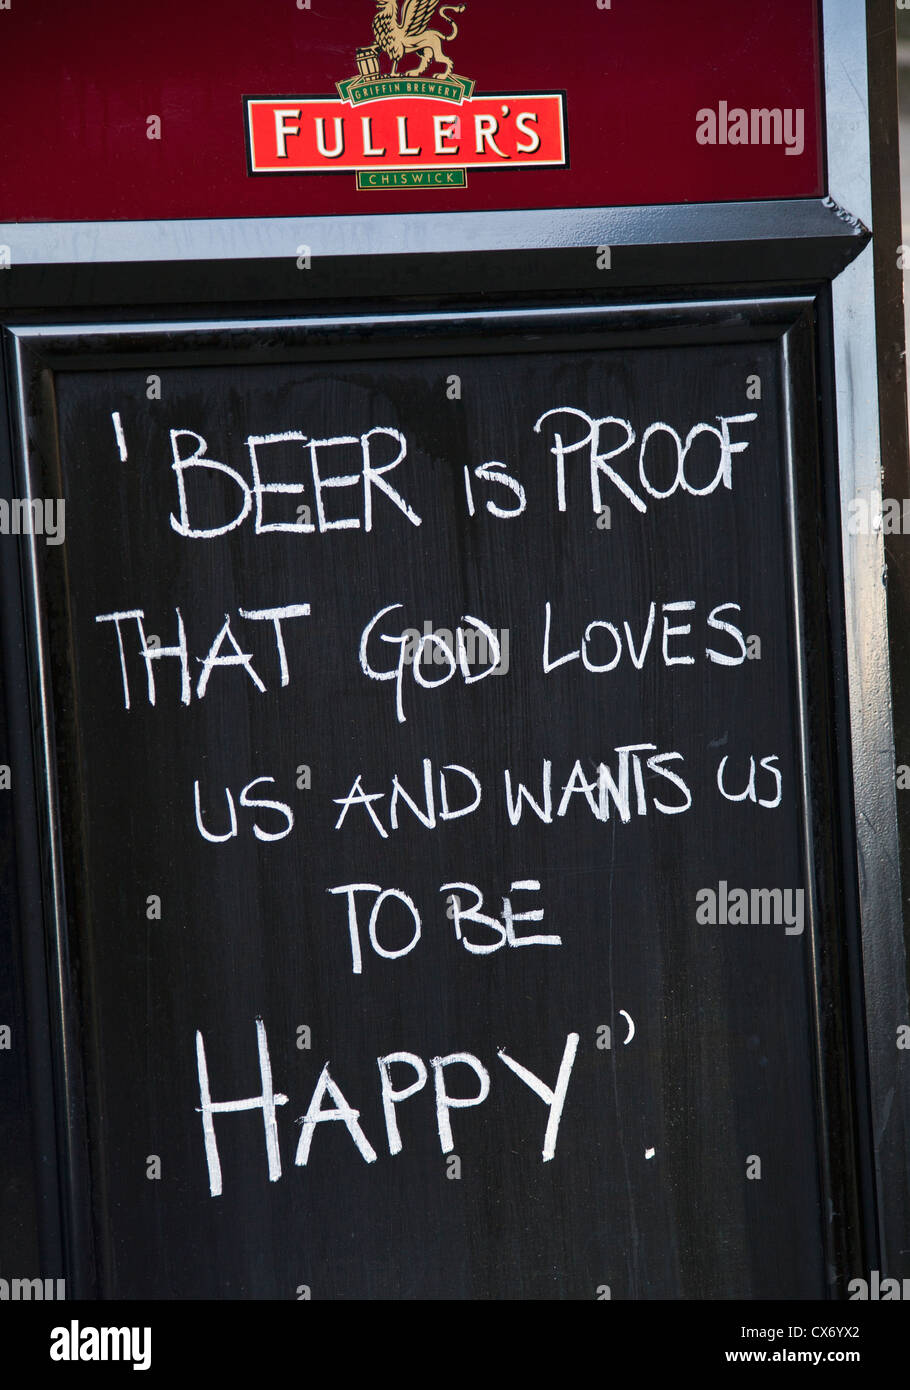 GRIFFIN BREWERY
FULLER'S
CHISWICK
'BEER IS PROOF
THAT GOD LOVES
US AND WANTS US
TO BE
HAPPY'.
alamy
alamy
a alamy stock photo
Image ID: CX6YX2
www.alamy.com